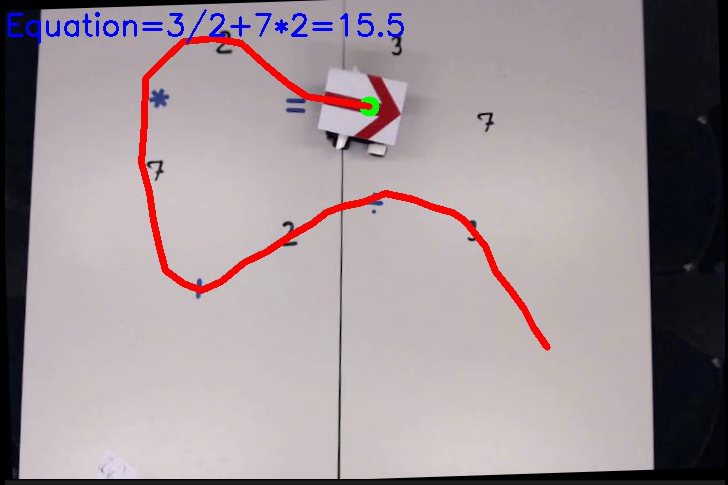 Equation=3/2+7*2=15.5
2 3
* = 7
7
2 ÷ 3
+